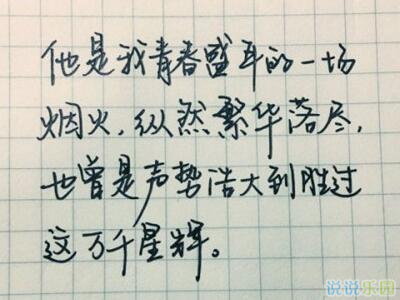 他是我青春盛年的一场
烟火，纵然繁华落尽，
也曾是声势浩大到胜过
这万千星辉。
说说乐园